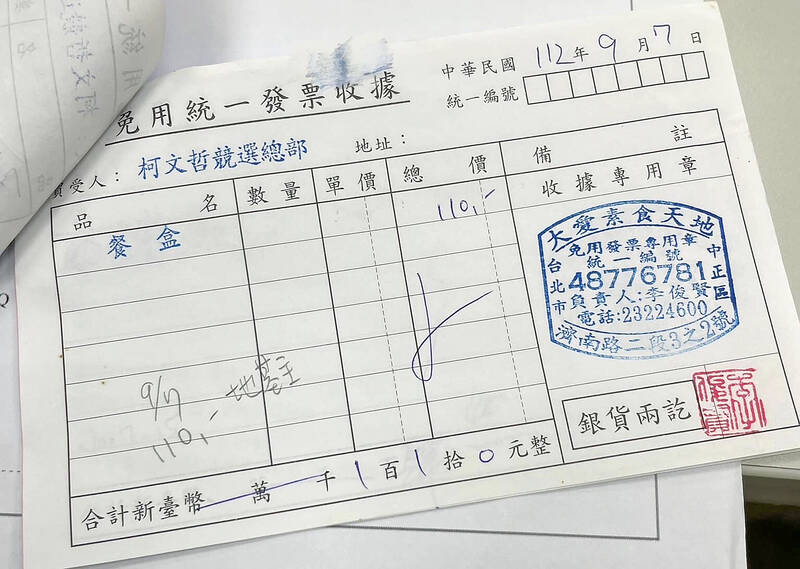 中華民國 112年 9月 7日
統一編號
免用統一發票收據
買受人：柯文哲競選總部 地址：
品名 數量 單價 總價 備註
餐盒 110,-
收據專用章
大愛素食天地
免用發票專用章
統一編號
48776781
台北市 中正區
負責人:李俊賢
電話:23224600
濟南路二段3之2號
9/7
110,-
銀貨兩訖
合計新臺幣 萬 千 1百 1拾 0元整